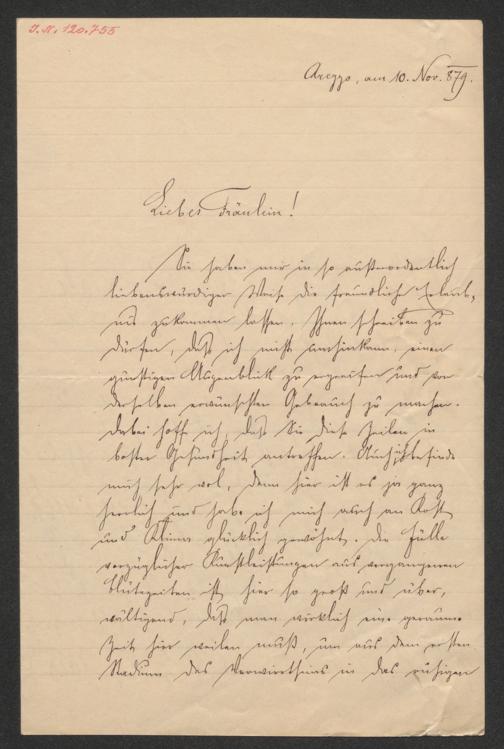 I.N. 120.755
Arezzo, am 10. Nov. 879.
Liebes Fräulein!
Sie haben mir in so außerordentlich
liebenswürdiger Weise die freundliche Erlaub-
nis zukommen lassen, Ihnen schreiben zu
dürfen, daß ich nicht umhinkann, einen
günstigen Augenblick zu ergreifen und von
derselben erwünschten Gebrauch zu machen.
Dabei hoffe ich, daß Sie diese Zeilen in
bester Gesundheit antreffen. Auch ich befinde
mich sehr wol, denn hier ist es ja ganz
herrlich und habe ich mich auch an Kost
und Klima glücklich gewöhnt. Die Fülle
vorzüglicher Kunstleistungen aus vergangenen
Blütezeiten ist hier so groß und über-
wältigend, daß man wirklich eine geraume
Zeit hier weilen muß, um aus dem ersten
Stadium des Verwirrtseins in das ruhigen